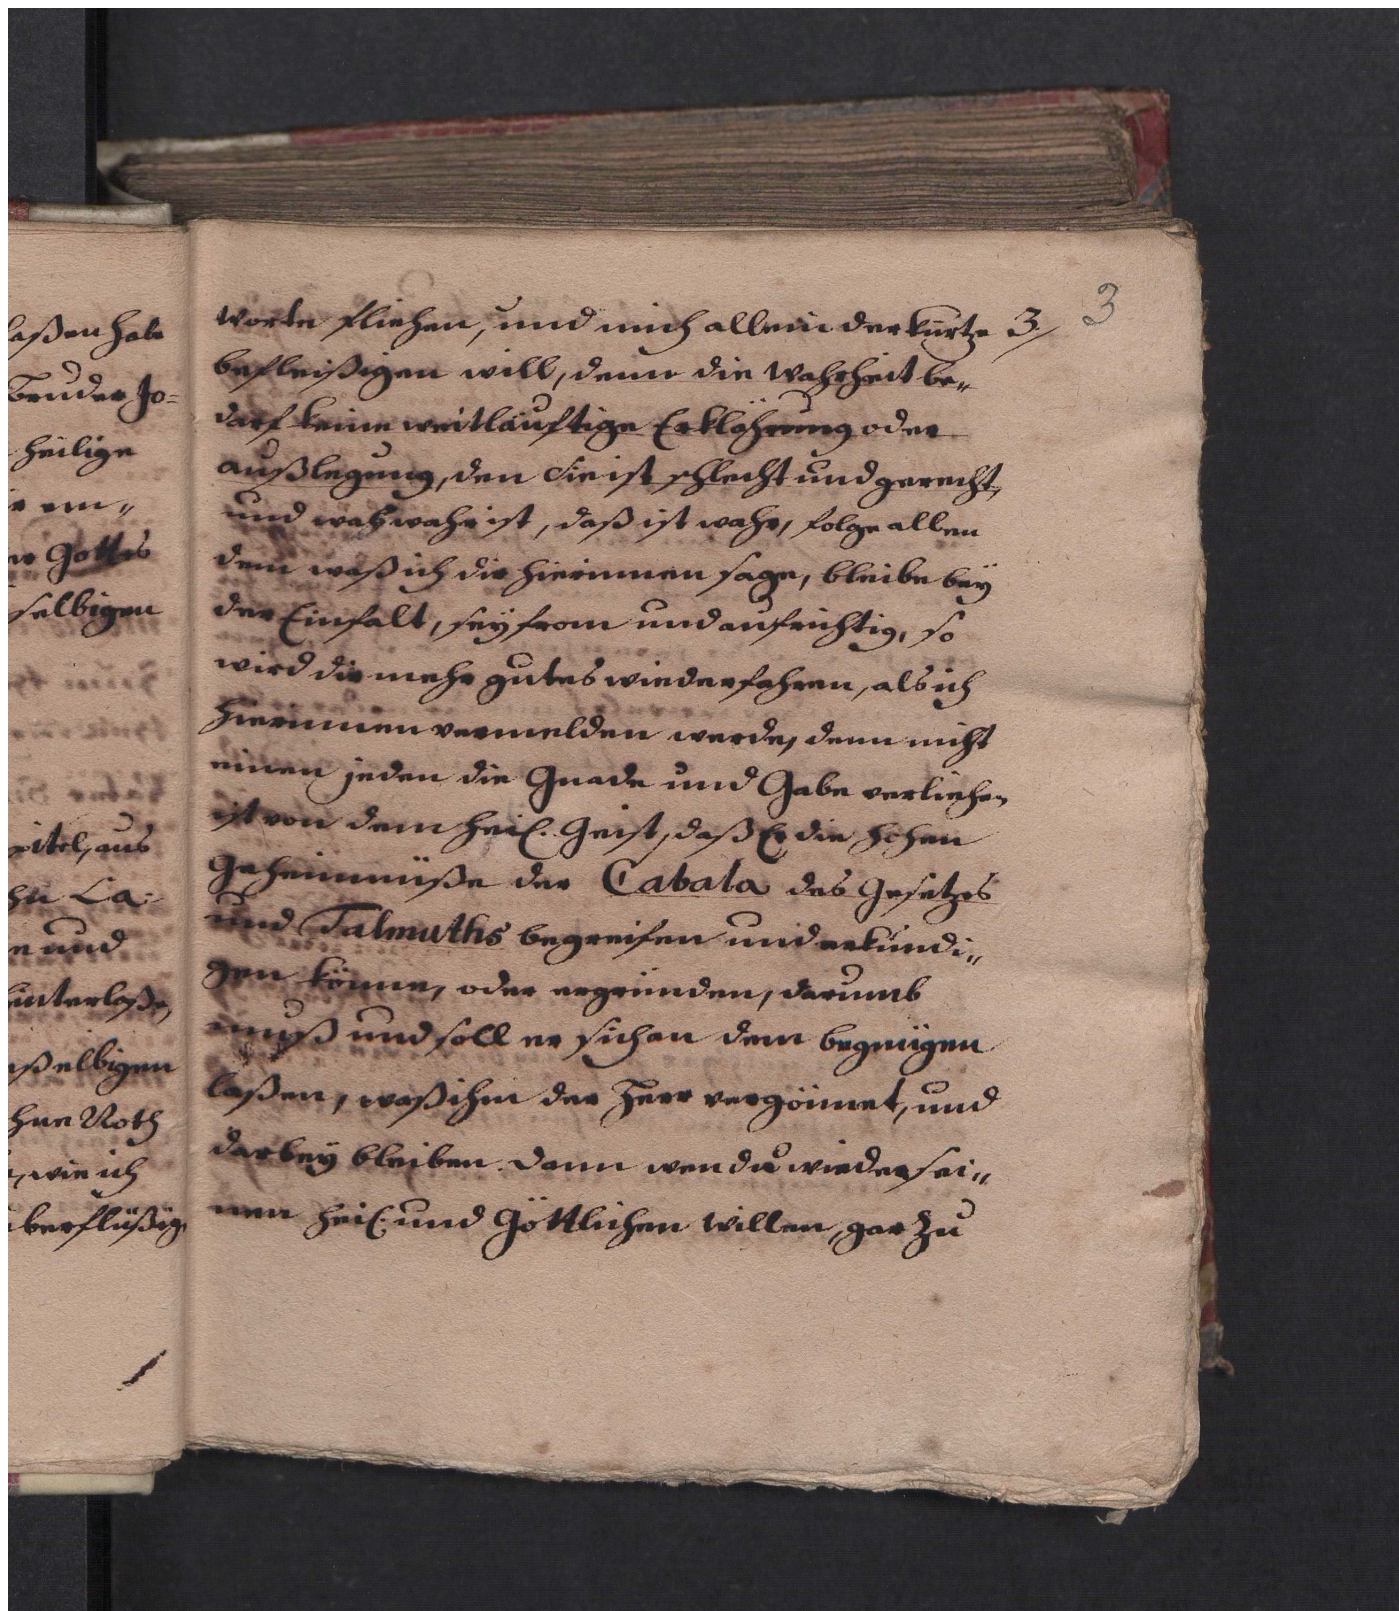 laßen habe
Bruder Jo=
heilige
r em„
er Gottes
selbigen
pitel, aus
hn La=
e und
unterlaße,
aßelbigen
hne Noth
, wie ich
berflüßig
3
worte fliehen, und mich allein der kürtze 3/
befleißigen will, denn die Wahrheit be„
darf keine weitläuftige Erklährung oder
außlegung, den Sie ist schlecht und gerecht,
und waß wahr ist, daß ist wahr, folge allen
dem waß ich dir hierinnen sage, bleibe beÿ
der Einfalt, seÿ from und aufrichtig, so
wird dir mehr gutes wiederfahren, als ich
hierinnen vermelden werde, denn nicht
einen jeden die Gnade und Gabe verliehen
ist von dem heil. Geist, daß Er die hohen
Geheimnüße der Cabala des Gesetzes
und Talmuths begreifen und erkündi„
gen könne, oder ergründen, darumb
muß und soll er sich an dem begnügen
laßen, waß ihm der Herr vergönnet, und
darbeÿ bleiben. Dann wen du wieder sei„
nen heil. und Göttlichen willen, gar zu